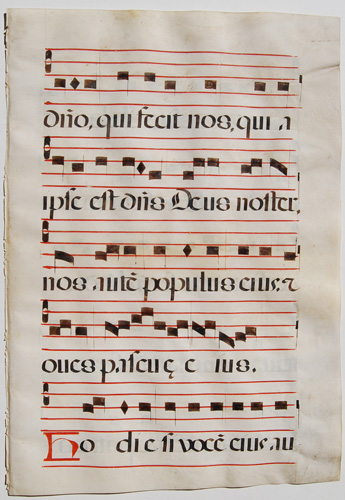 dño, qui fecit nos, quia
ipse est dñs Deus noster,
nos autẽ populus eius, &
oues pascuę eius.
Hodie si vocẽ eius au